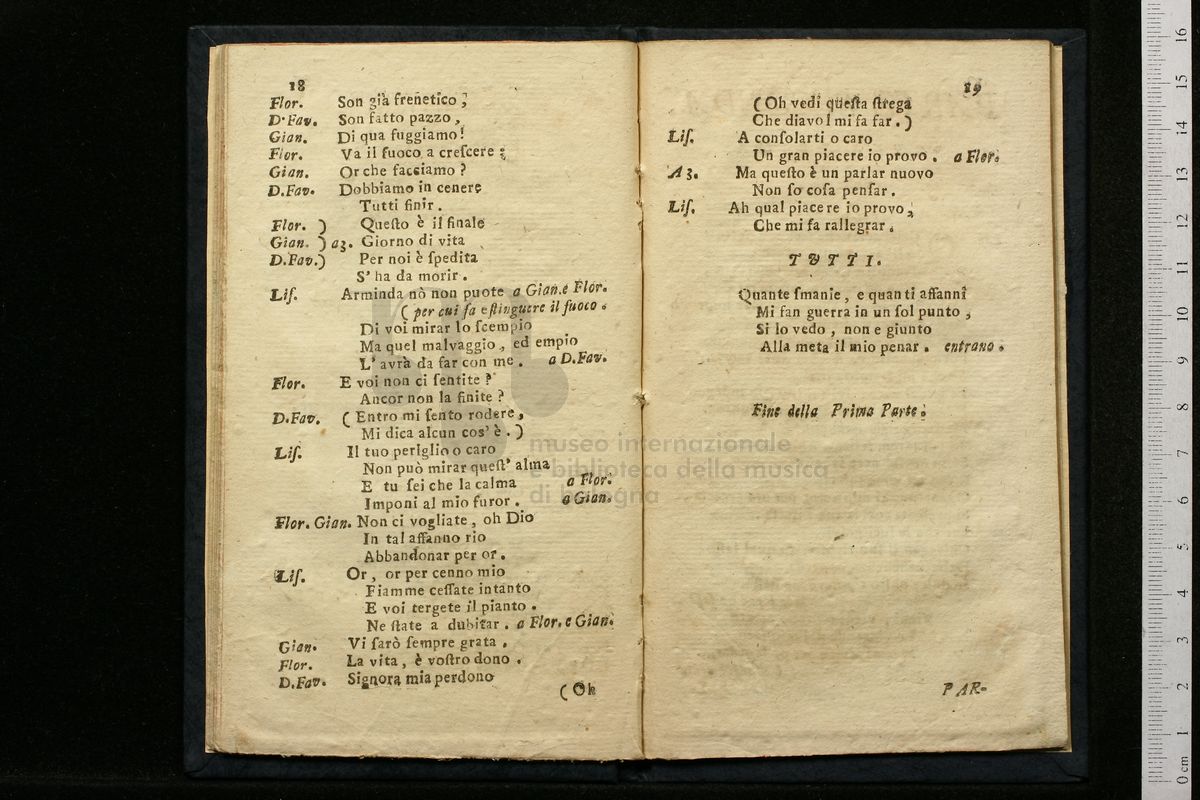 18
Flor. Son già frenetico ;
D. Fav. Son fatto pazzo ,
Gian. Di qua fuggiamo !
Flor. Va il fuoco a creſcere ;
Gian. Or che facciamo ?
D. Fav. Dobbiamo in cenere
Tutti finir .
Flor. ) Queſto è il finale
Gian. ) a3. Giorno di vita
D. Fav.) Per noi è ſpedita
S' ha da morir .
Liſ. Arminda nò non puote a Gian. e Flor.
( per cui fa eſtinguere il fuoco .
Di voi mirar lo ſcempio
Ma quel malvaggio , ed empio
L' avrà da far con me . a D. Fav.
Flor. E voi non ci ſentite ?
Ancor non la finite ?
D. Fav. ( Entro mi ſento rodere ,
Mi dica alcun cos' è . )
Liſ. Il tuo periglio o caro
Non può mirar queſt' alma
E tu ſei che la calma a Flor.
Imponi al mio furor . a Gian.
Flor. Gian. Non ci vogliate , oh Dio
In tal affanno rio
Abbandonar per or .
Liſ. Or , or per cenno mio
Fiamme ceſſate intanto
E voi tergete il pianto .
Ne ſtate a dubitar . a Flor. e Gian.
Gian. Vi ſarò ſempre grata .
Flor. La vita , è voſtro dono .
D. Fav. Signora mia perdono
( Oh
19
( Oh vedi queſta ſtrega
Che diavol mi fa far . )
Liſ. A conſolarti o caro
Un gran piacere io provo . a Flor.
A 3. Ma queſto è un parlar nuovo
Non ſo coſa penſar .
Liſ. Ah qual piacere io provo ,
Che mi fa rallegrar .
TUTTI.
Quante ſmanie , e quanti affanni
Mi fan guerra in un ſol punto ,
Si lo vedo , non e giunto
Alla meta il mio penar . entrano .
Fine della Prima Parte .
PAR-
museo internazionale
e biblioteca della musica
di bologna
0 cm 1 2 3 4 5 6 7 8 9 10 11 12 13 14 15 16